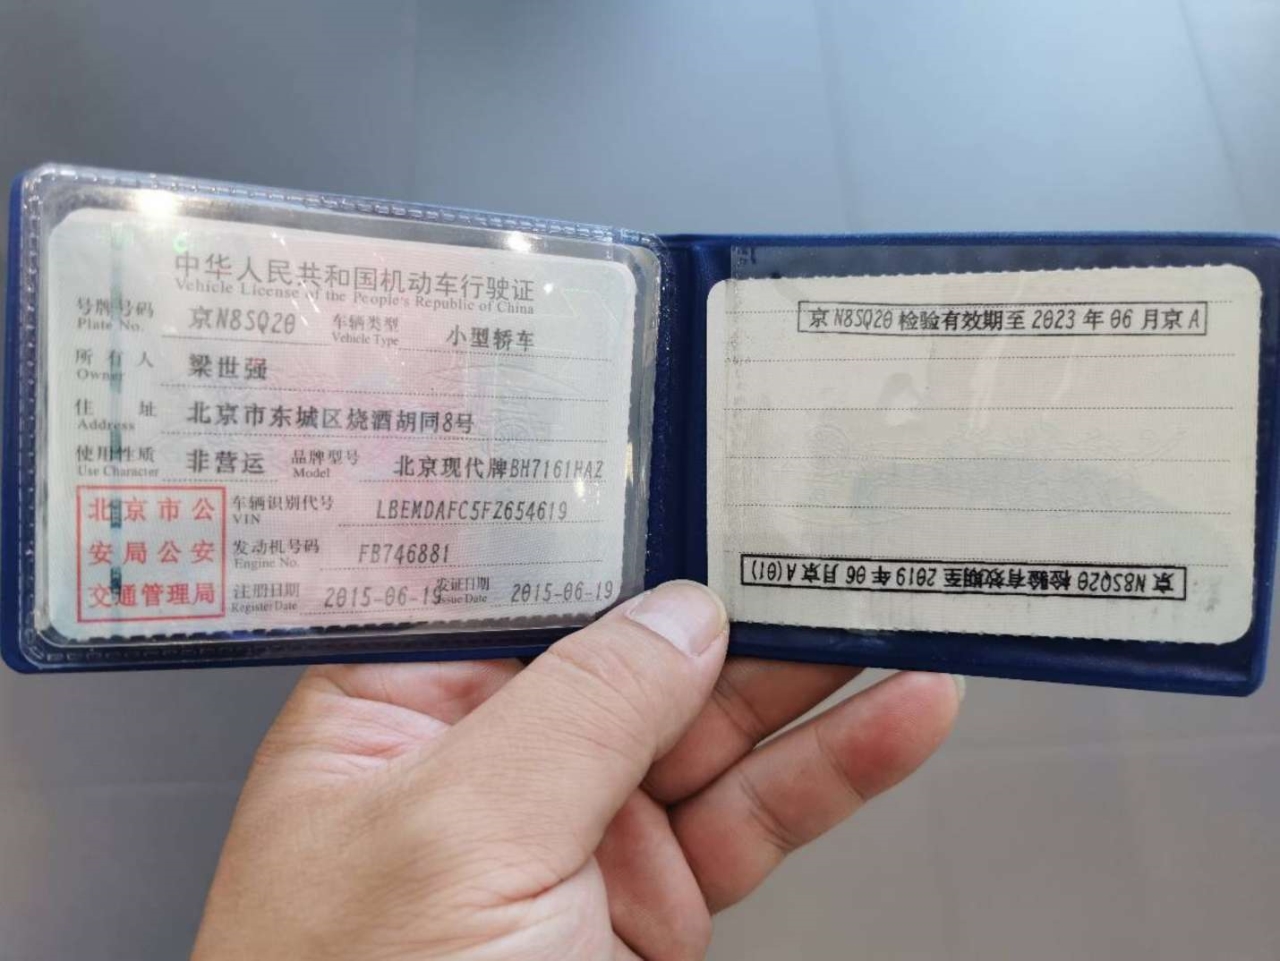 中华人民共和国机动车行驶证
Vehicle License of the People's Republic of China
号牌号码 京N8SQ20 车辆类型 小型轿车
Plate No. Vehicle Type
所有人 梁世强
Owner
住址 北京市东城区烧酒胡同8号
Address
使用性质 非营运 品牌型号 北京现代牌BH7161HAZ
Use Character Model
北京市公
安局公安
交通管理局
车辆识别代号 LBEMDAFC5FZ654619
VIN
发动机号码 FB746881
Engine No.
注册日期 2015-06-19 发证日期 2015-06-19
Register Date Issue Date
京N8SQ20检验有效期至2023年06月京A
京N8SQ20检验有效期至2019年06月京A(01)